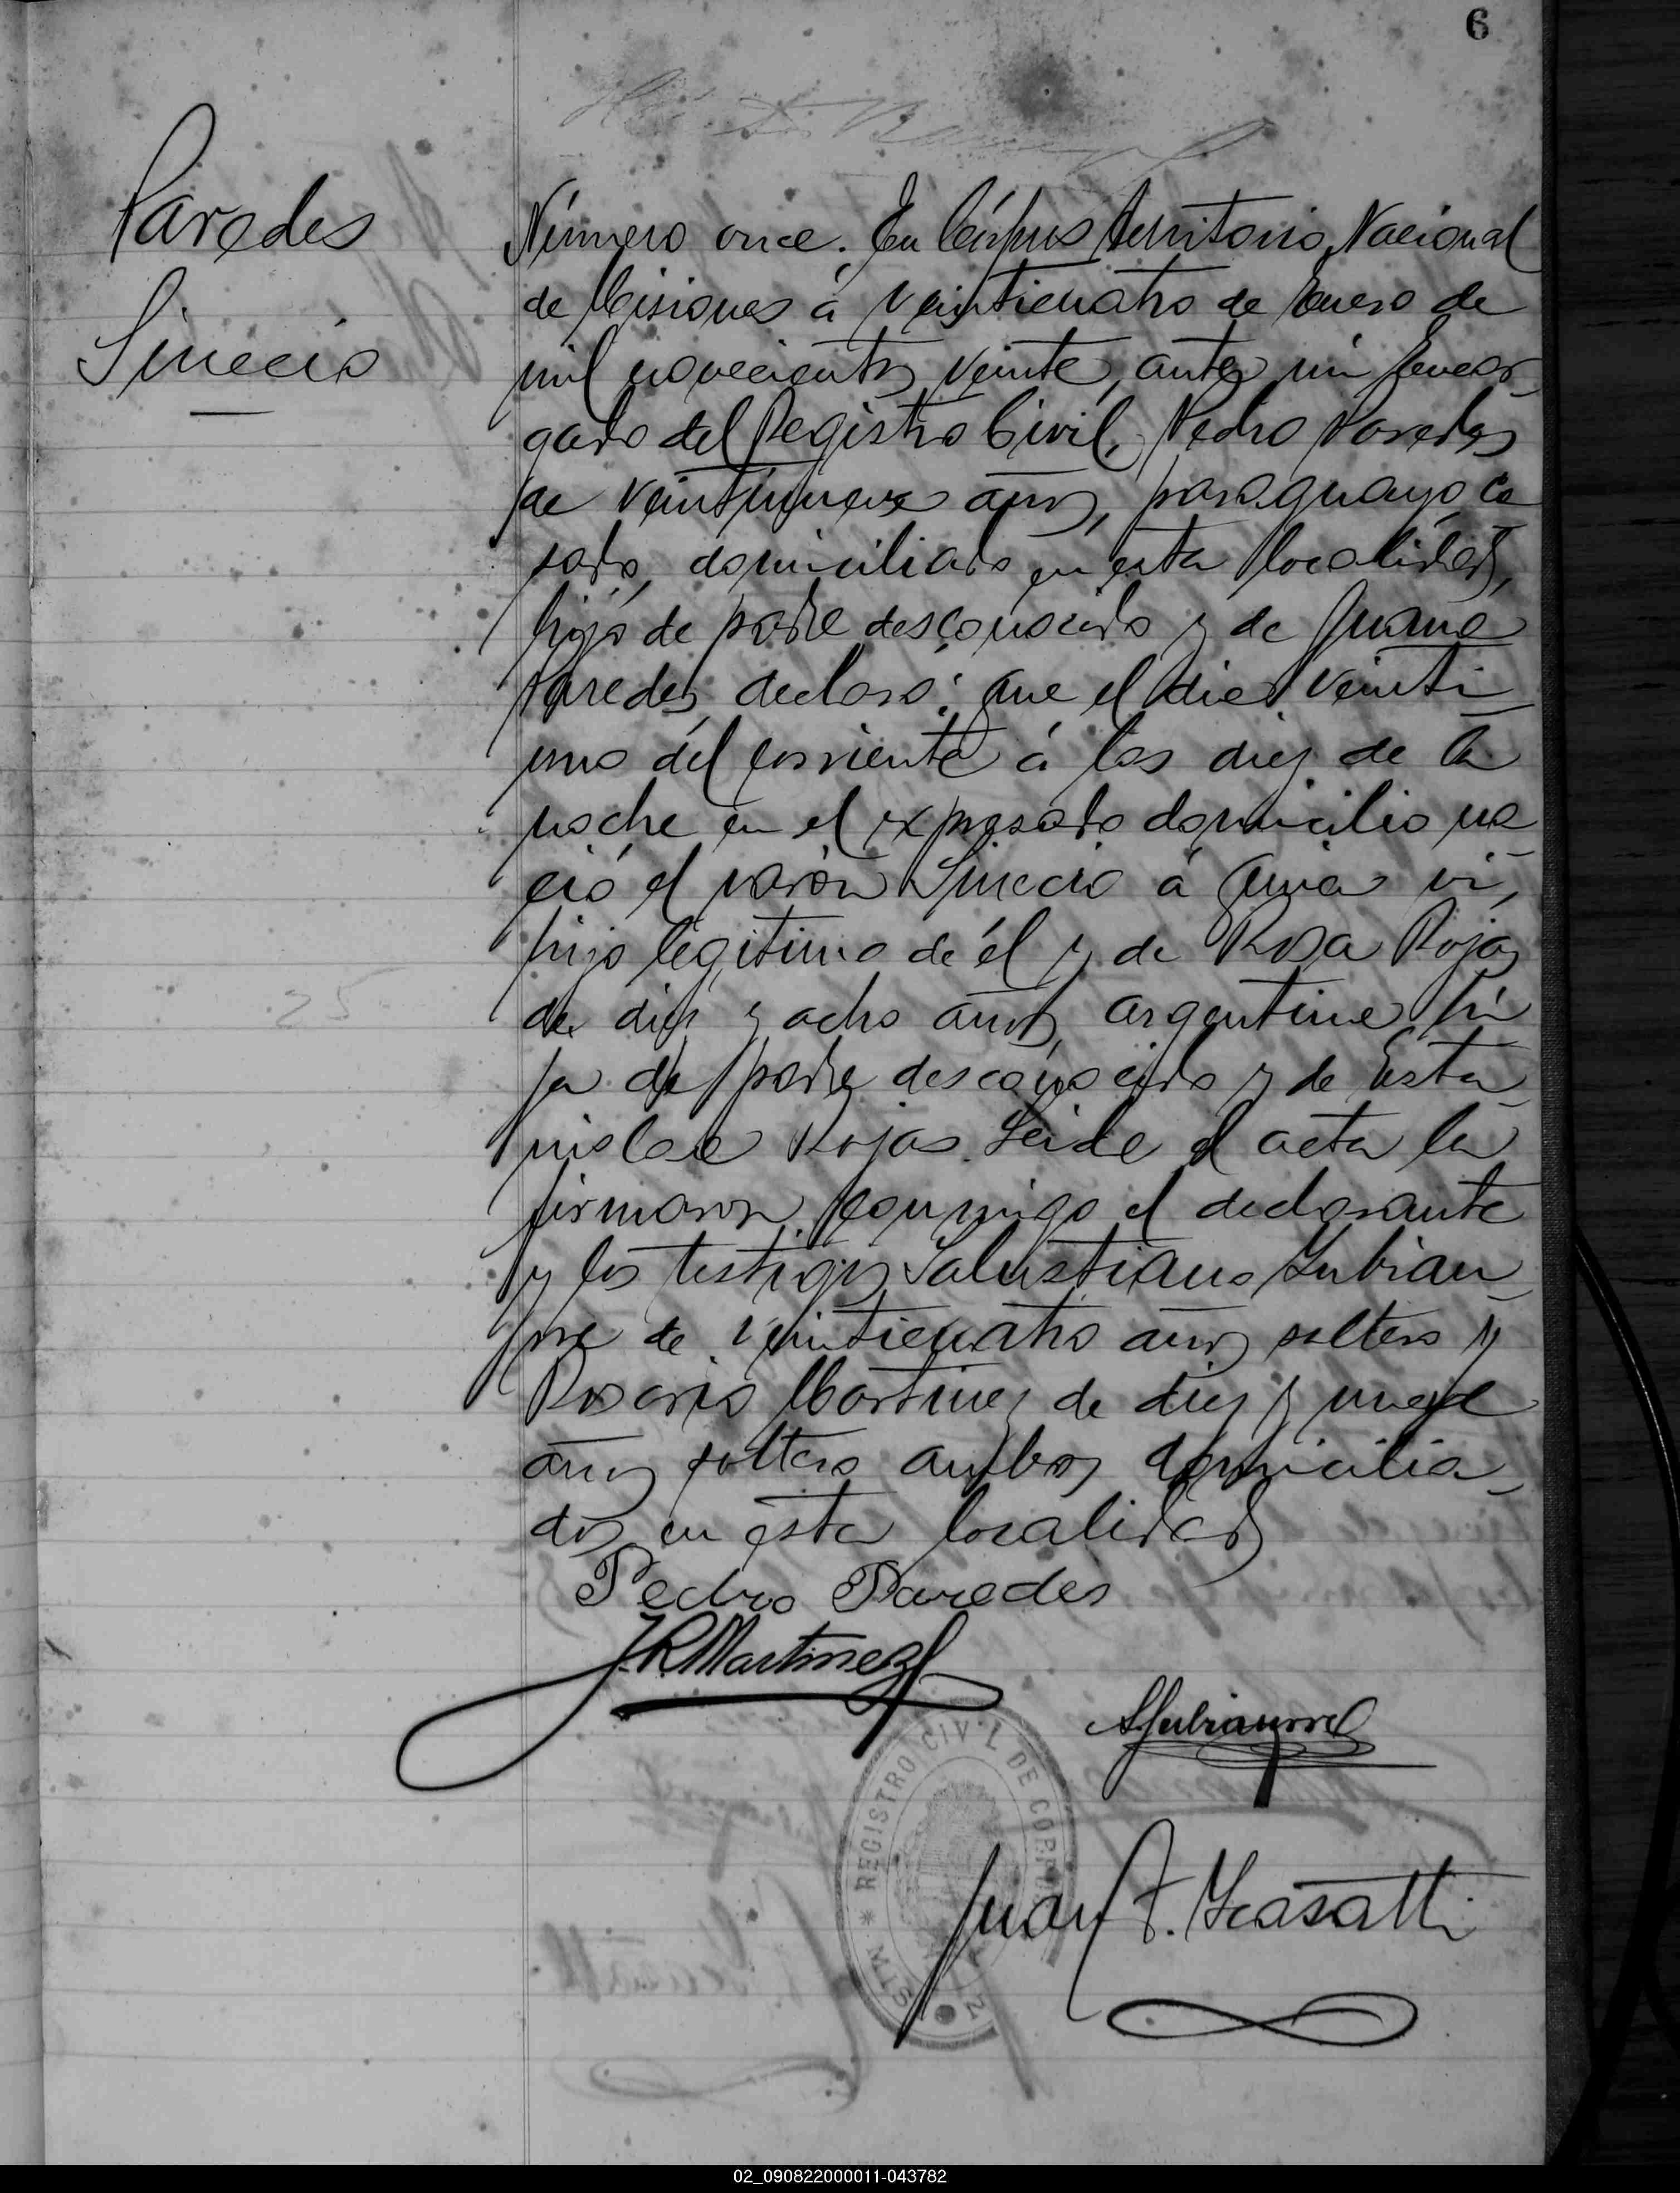 6
Paredes
Sinecio
Número once. En Córpus Territorio Nacional
de Misiones á veinticuatro de Enero de
mil novecientos veinte, ante mi Encar
gado del Registro Civil, Pedro Paredes
de veintinueve años, paraguayo, ca
sado, domiciliado en esta localidad,
hijo de padre desconocido y de Juana
Paredes, declaró: que el dia veinti
uno del corriente á las diez de la
noche en el expresado domicilio na
ció el varón Sinecio á quien vi,
hijo legitimo de él y de Rosa Rojas
de diez y ocho años, argentina, hi
ja de padre desconocido y de Esta
nislaa Rojas. Leida el acta la
firmaron conmigo el declarante
y los testigos Salustiano Lubian
rre de veinticuatro años soltero y
Rosario Martinez de diez y nueve
años soltero ambos domicilia
dos en esta localidad
Pedro Paredes
J. R. Martinez
Juan F.
REGISTRO CIVIL DE CORPUS
02_090822000011-043782